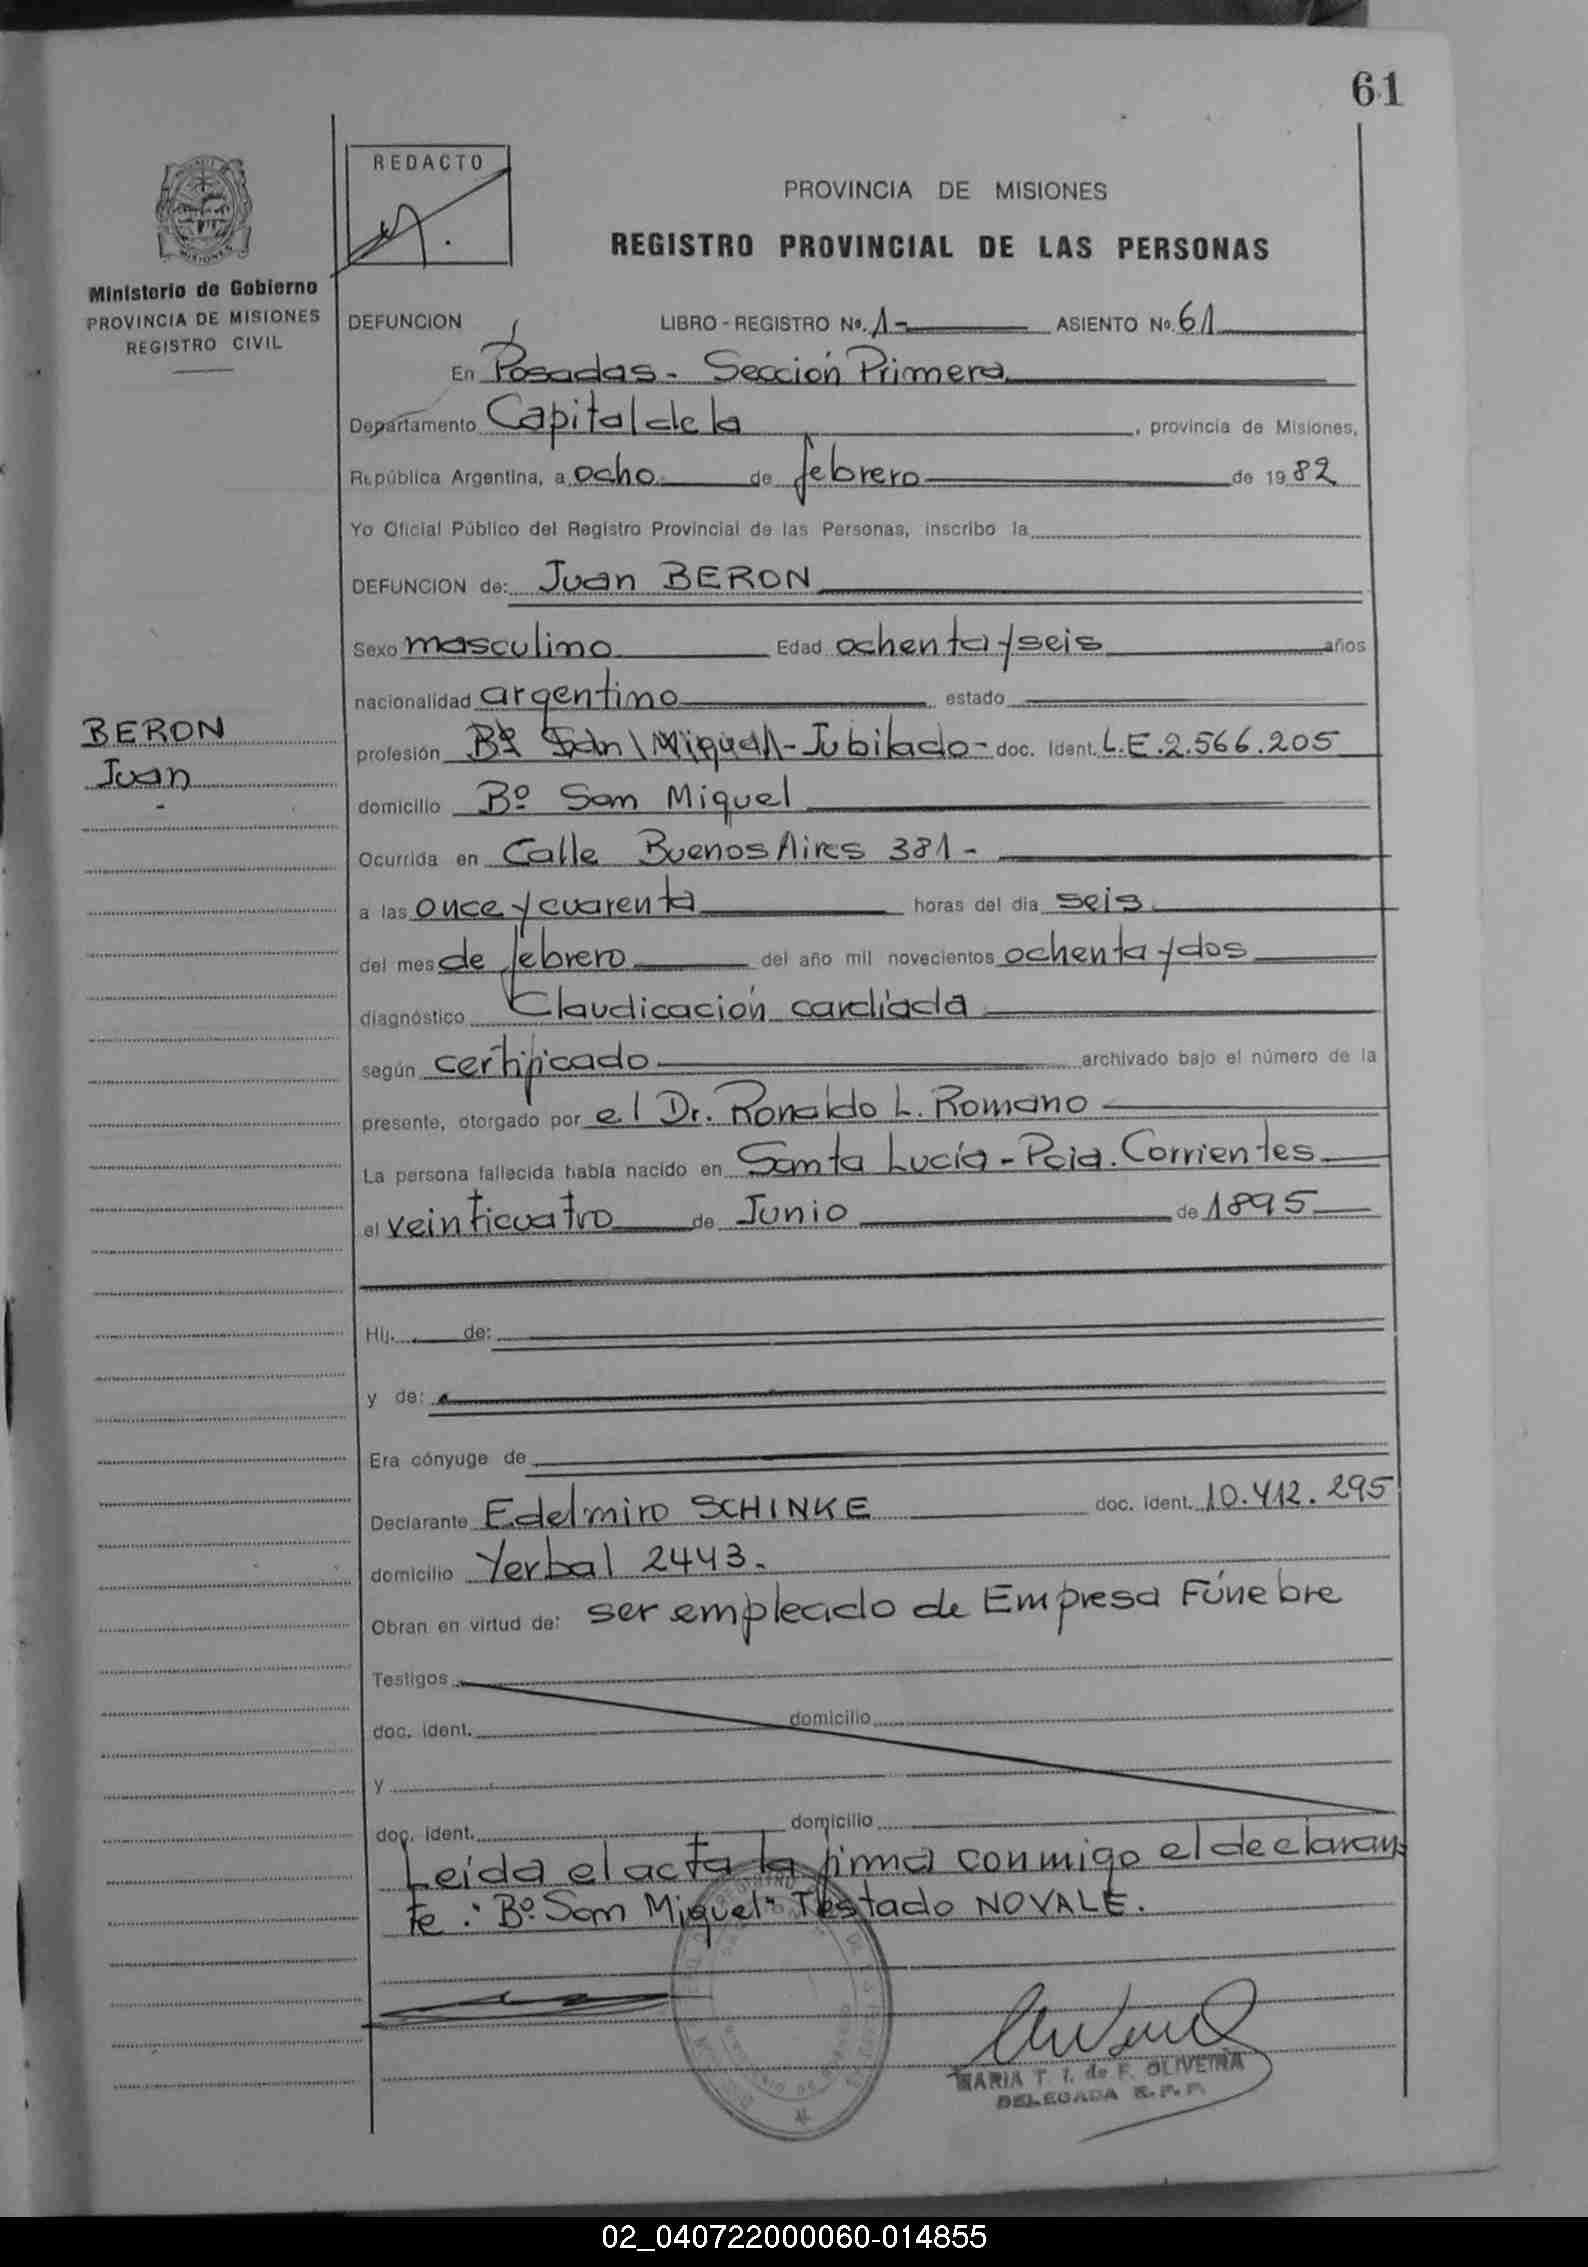 61
REDACTO
PROVINCIA DE MISIONES
REGISTRO PROVINCIAL DE LAS PERSONAS
MISIONES
Ministerio de Gobierno
PROVINCIA DE MISIONES
REGISTRO CIVIL
DEFUNCION LIBRO - REGISTRO Nº. 1- ASIENTO Nº. 61
En Posadas - Sección Primera
Departamento Capital de la , provincia de Misiones,
República Argentina, a ocho de febrero de 1982
Yo Oficial Público del Registro Provincial de las Personas, inscribo la
DEFUNCION de: Juan BERON
Sexo masculino Edad ochenta y seis años
nacionalidad argentino estado
BERON
Juan
-
profesión Bº San Miguel - Jubilado - doc. Ident. L.E.2.566.205
domicilio Bº San Miguel
Ocurrida en Calle Buenos Aires 381 -
a las once y cuarenta horas del día seis
del mes de febrero del año mil novecientos ochenta y dos
diagnóstico Claudicación cardíaca
según certificado archivado bajo el número de la
presente, otorgado por el Dr. Ronaldo L. Romano
La persona fallecida había nacido en Santa Lucía - Pcia. Corrientes
el veinticuatro de Junio de 1895
Hij. de:
y de:
Era cónyuge de
Declarante Edelmiro SCHINKE doc. ident. 10.412.295
domicilio Yerbal 2443.
Obran en virtud de: ser empleado de Empresa Fúnebre
Testigos
doc. ident. domicilio
y
doc. ident. domicilio
Leída el acta la firma conmigo el declaran
te.: "Bº San Miguel" Testado NO VALE.
MARIA T. I. de F. OLIVEIRA
DELEGADA R.P.P.
02_040722000060-014855